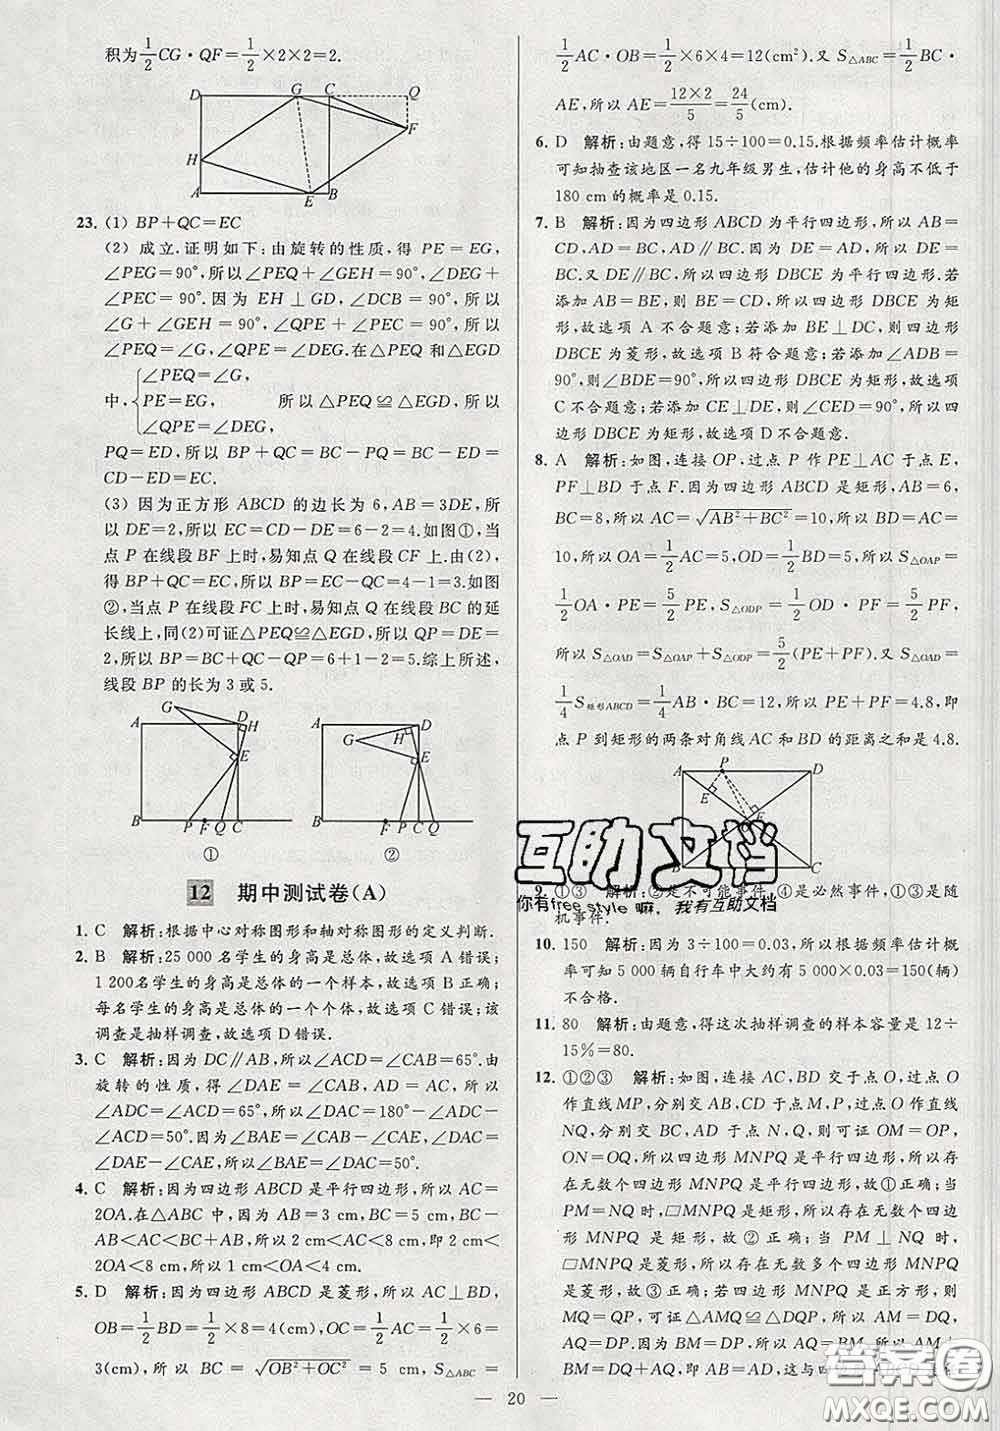 积为1/2CG·QF=1/2×2×2=2.
D G C Q
F
H
A E B
23. (1) BP+QC=EC
(2) 成立.证明如下:由旋转的性质,得 PE=EG,
∠PEG=90°,所以∠PEQ+∠GEH=90°,∠DEG+
∠PEC=90°.因为 EH⊥GD,∠DCB=90°,所以
∠G+∠GEH=90°,∠QPE+∠PEC=90°,所以
∠PEQ=∠G,∠QPE=∠DEG.在△PEQ 和△EGD
∠PEQ=∠G,
中,PE=EG, 所以△PEQ≌△EGD,所以
∠QPE=∠DEG,
PQ=ED,所以 BP+QC=BC-PQ=CD-ED=EC,
(3) 因为正方形 ABCD 的边长为 6,AB=3DE,所
以 DE=2,所以 EC=CD-DE=6-2=4.如图①,当
点 P 在线段 BF 上时,易知点 Q 在线段 CF 上.由(2),
得 BP+QC=EC,所以 BP=EC-QC=4-1=3.如图
②,当点 P 在线段 FC 上时,易知点 Q 在线段 BC 的延
长线上,同(2)可证△PEQ≌△EGD,所以 QP=DE=
2,所以 BP=BC+QC-QP=6+1-2=5.综上所述,
线段 BP 的长为 3 或 5.
G A D H E B P F Q C
①
A D H G E B F P C Q
②
12 期中测试卷(A)
1. C 解析:根据中心对称图形和轴对称图形的定义判断.
2. B 解析:25 000 名学生的身高是总体,故选项 A 错误;
1 200名学生的身高是总体的一个样本,故选项 B 正确;
每名学生的身高是总体的一个个体,故选项 C 错误;该
调查是抽样调查,故选项 D 错误.
3. C 解析:因为 DC∥AB,所以∠ACD=∠CAB=65°.由
旋转的性质,得∠DAE=∠CAB,AC=AD,所以
∠ADC=∠ACD=65°,所以∠DAC=180°-∠ADC-
∠ACD=50°.因为∠BAE=∠CAB-∠CAE,∠DAC=
∠DAE-∠CAE,所以∠BAE=∠DAC=50°.
4. C 解析:因为四边形 ABCD 是平行四边形,所以 AC=
2OA.在△ABC 中,因为 AB=3 cm,BC=5 cm,所以
2 cm<AC<BC+AB,所以 2 cm<AC<8 cm,即 2 cm<
2OA<8 cm,所以 1 cm<OA<4 cm.
5. D 解析:因为四边形 ABCD 是菱形,所以 AC⊥BD,
OB=1/2BD=1/2×8=4(cm),OC=1/2AC=1/2×6=
3(cm),所以 BC=√(OB²+OC²)=5 cm,S△ABC=
1/2AC·OB=1/2×6×4=12(cm²).又 S△ABC=1/2BC·
AE,所以 AE=(12×2)/5=24/5(cm).
6. D 解析:由题意,得 15÷100=0.15.根据频率估计概率
可知抽查该地区一名九年级男生,估计他的身高不低于
180 cm 的概率是 0.15.
7. B 解析:因为四边形 ABCD 为平行四边形,所以 AB=
CD,AD=BC,AD∥BC.因为 DE=AD,所以 DE=
BC.又 DE∥BC,所以四边形 DBCE 为平行四边形.若
添加 AB=BE,则 BE=CD,所以四边形 DBCE 为矩
形,故选项 A 不合题意;若添加 BE⊥DC,则四边形
DBCE 为菱形,故选项 B 符合题意;若添加∠ADB=
90°,则∠BDE=90°,所以四边形 DBCE 为矩形,故选项
C 不合题意;若添加 CE⊥DE,则∠CED=90°,所以四
边形 DBCE 为矩形,故选项 D 不合题意.
8. A 解析:如图,连接 OP,过点 P 作 PE⊥AC 于点 E,
PF⊥BD 于点 F.因为四边形 ABCD 是矩形,AB=6,
BC=8,所以 AC=√(AB²+BC²)=10,所以 BD=AC=
10,所以 OA=1/2AC=5,OD=1/2BD=5,所以 S△OAP=
1/2OA·PE=5/2PE,S△ODP=1/2OD·PF=5/2PF,
所以 S△OAD=S△OAP+S△ODP=5/2(PE+PF).又 S△OAD=
1/4S矩形ABCD=1/4AB·BC=12,所以 PE+PF=4.8,即
点 P 到矩形的两条对角线 AC 和 BD 的距离之和是 4.8.
A P D
E F
C
互助文档
你有free style 嘛, 我有互助文档
9. ①③ 解析:②是不可能事件,④是必然事件,①③是随
机事件.
10. 150 解析:因为 3÷100=0.03,所以根据频率估计概
率可知 5 000 辆自行车中大约有 5 000×0.03=150(辆)
不合格.
11. 80 解析:由题意,得这次抽样调查的样本容量是 12÷
15%=80.
12. ①②③ 解析:如图,连接 AC,BD 交于点 O,过点 O
作直线MP,分别交 AB,CD 于点 M,P,过点 O 作直线
NQ,分别交 BC,AD 于点 N,Q,则可证 OM=OP,
ON=OQ,所以四边形 MNPQ 是平行四边形,所以存
在无数个四边形 MNPQ 是平行四边形,故①正确;当
PM=NQ 时,▱MNPQ 是矩形,所以存在无数个四边
形 MNPQ 是矩形,故②正确;当 PM⊥NQ 时,
▱MNPQ 是菱形,所以存在无数多个四边形 MNPQ
是菱形,故③正确;若四边形 MNPQ 是正方形,则
MQ=QP,可证△AMQ≌△DQP,所以 AM=DQ,
AQ=DP.因为 BM=DP,所以 BM=AQ,所以 AM+
BM=DQ+AQ,即 AB=AD,这与四
答案圈
MXQE.COM
20